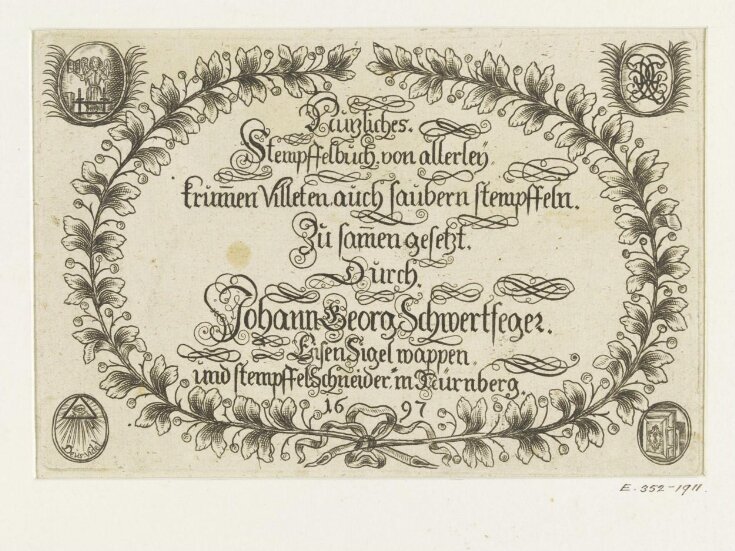 Nutzliches.
Stempffelbuch, von allerleÿ,
krum̄en Villeten, auch saubern stempffeln.
Zu sam̄en gesetzt.
Durch.
Johann Georg Schwertfeger.
Eysen Sigel wappen,
und stempffelSchneider in Nürnberg.
16 97
E.352-1911.